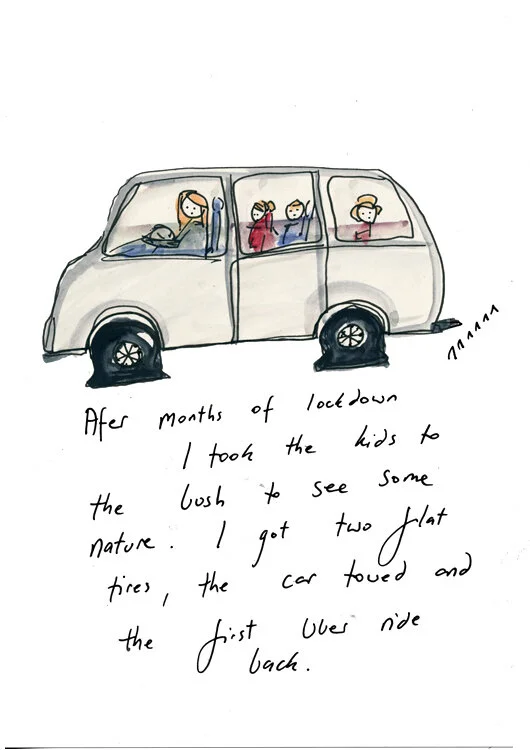 Afer months of lockdown
I took the kids to
the bush to see some
nature. I got two flat
tires, the car towed and
the first Uber ride
back.